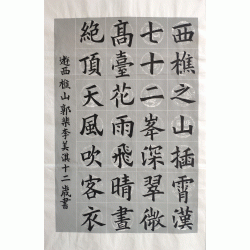 西樵之山插霄漢
七十二峯深翠微
髙臺花雨飛晴晝
絶頂天風吹客衣
遊西樵山 郭棐 李美淇十二歲書